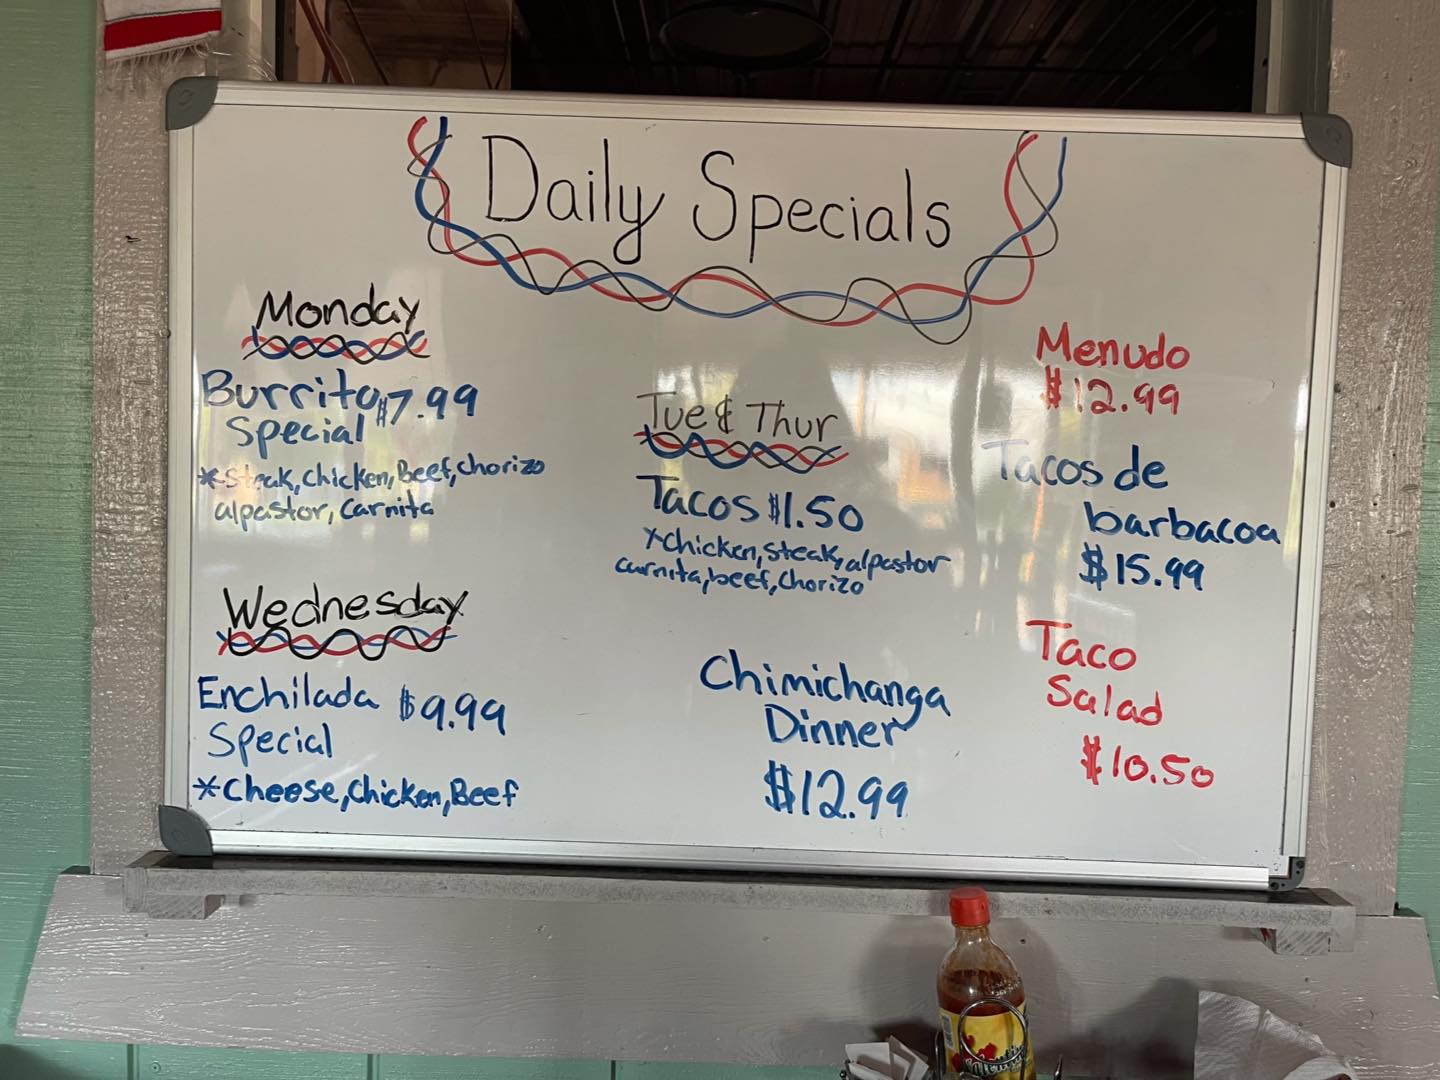 Daily Specials
Monday
Burrito $7.99
Special
*Steak, Chicken, Beef, Chorizo
alpastor, Carnita
Wednesday
Enchilada $9.99
Special
*Cheese, Chicken, Beef
Tue & Thur
Tacos $1.50
*Chicken, Steak, alpastor
carnita, beef, Chorizo
Chimichanga
Dinner
$12.99
Menudo
$12.99
Tacos de
barbacoa
$15.99
Taco
Salad
$10.50